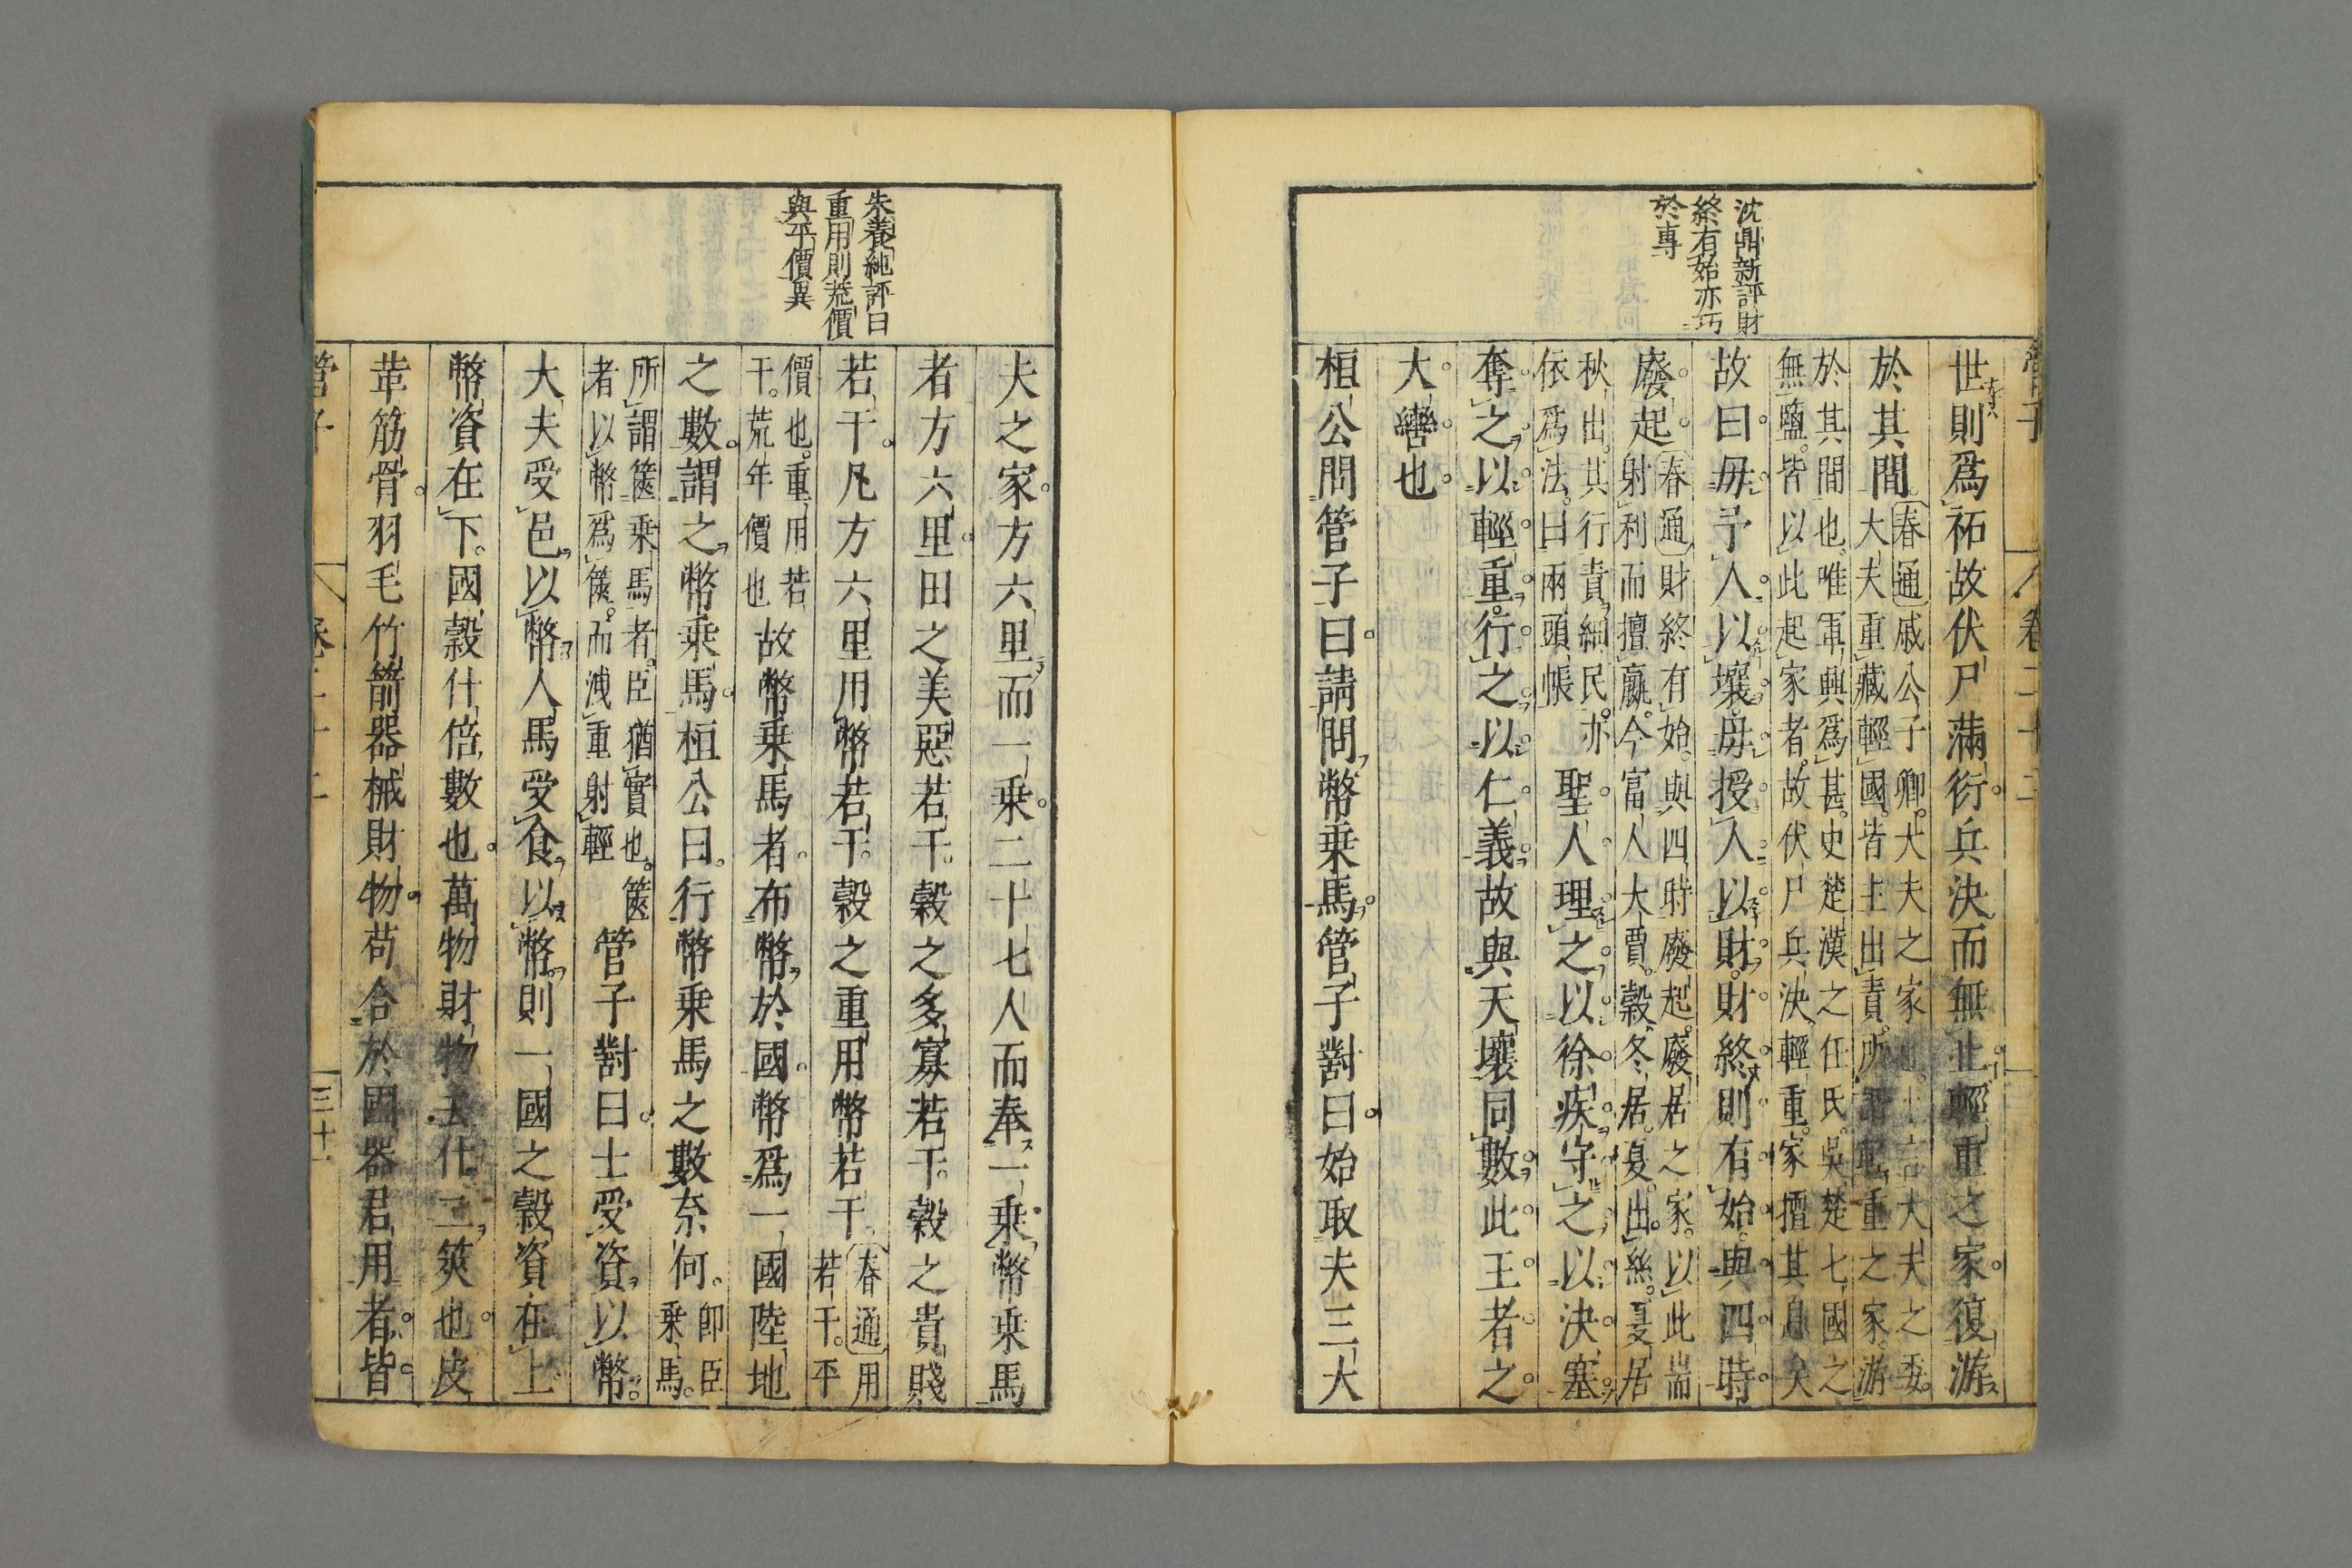 沈鼎新評財
終有始亦巧
於專
管子
卷二十二
世則爲祏故伏尸滿衍兵決而無止輕重之家復游
於其間春通戚公子卿大夫之家也言大夫之委
大夫重藏輕國皆主出責所謂輕重之家游
於其間也唯軍興爲甚史楚漢之任氏吳楚七國之
無鹽皆以此起家者故伏尸兵決輕重家擅其息矣
故曰毋予人以壤毋授人以財財終則有始與四時
廢起春通財終有始與四時廢起廢居之家以此耑
射利而擅贏今富人大賈穀冬居夏出絲夏居
秋出其行責細民亦
依爲法曰兩頭帳
聖人理之以徐疾守之以決塞
奪之以輕重行之以仁義故與天壤同數此王者之
大轡也
桓公問管子曰請問幣乘馬管子對曰始取夫三大
朱養純評曰
重用則荒價
與平價異
夫之家方六里而一乘二十七人而奉一乘幣乘馬
者方六里田之美惡若干穀之多寡若干穀之貴賤
若干凡方六里用幣若干穀之重用幣若干春通用
若干平
價也重用若
干荒年價也
故幣乘馬者布幣於國幣爲一國陸地
之數謂之幣乘馬桓公曰行幣乘馬之數奈何卽臣
乘馬
所謂篋乘馬者臣猶實也篋
者以幣爲篋而洩重射輕
管子對曰士受資以幣
大夫受邑以幣人馬受食以幣則一國之穀資在上
幣資在下國穀什倍數也萬物財物去什二筴也皮
革筋骨羽毛竹箭器械財物苟合於國器君用者皆
管子
卷二十二
三十